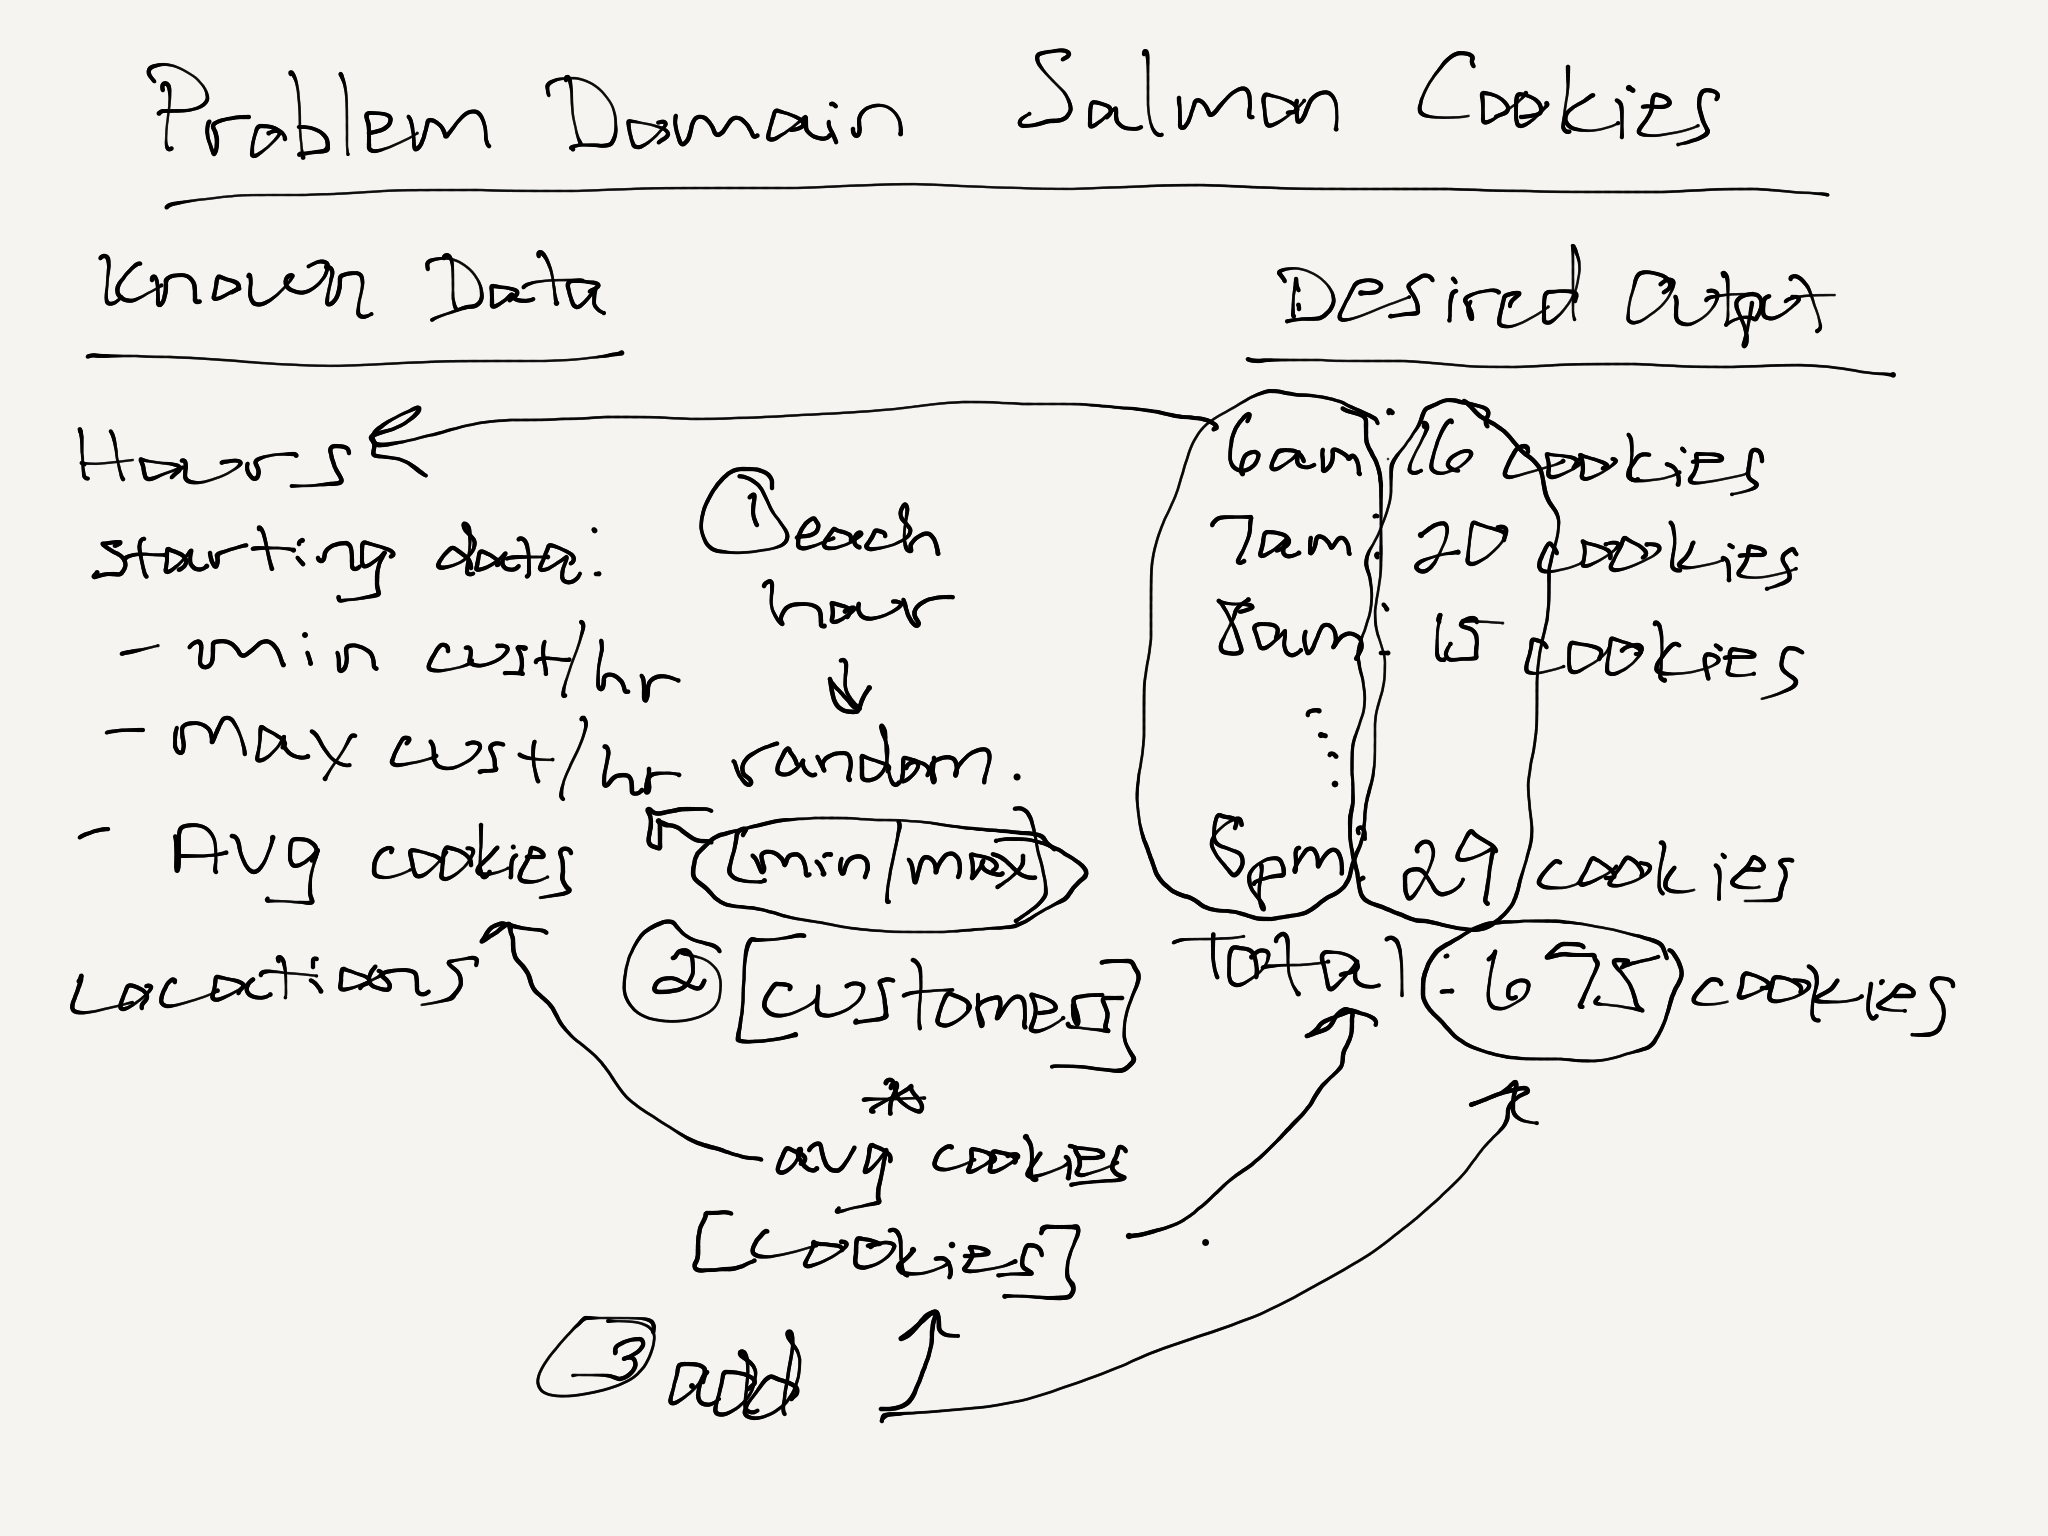 Problem Domain Salmon Cookies
Known Data
Hours
starting data:
- min cust/hr
- max cust/hr
- Avg cookies
Locations
① each
hour
↓
random.
[min/max]
② [customers]
*
avg cookies
[cookies]
③ add
Desired Output
6am: 16 cookies
7am: 20 cookies
8am: 15 cookies
8pm: 29 cookies
Total: 675 cookies